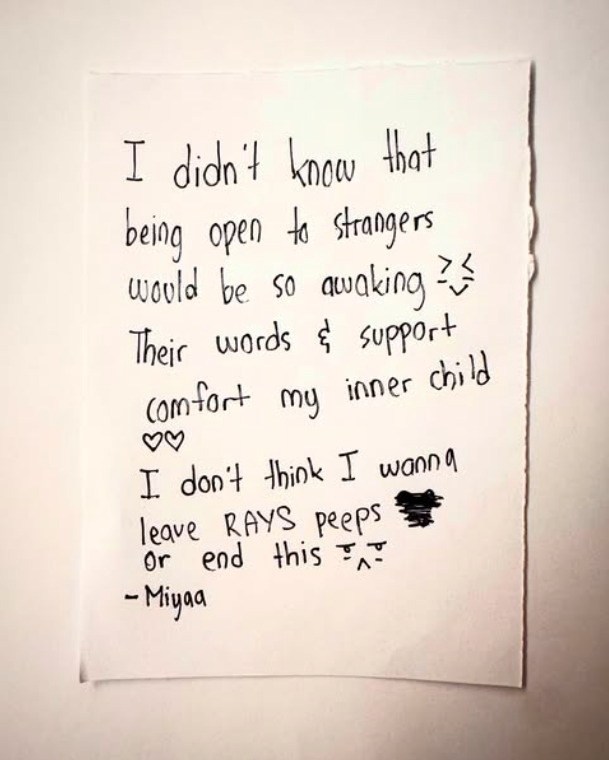 I didn't know that
being open to strangers
would be so awaking
Their words & support
comfort my inner child
♡♡
I don't think I wanna
leave RAYS peeps
or end this
-Miyaa